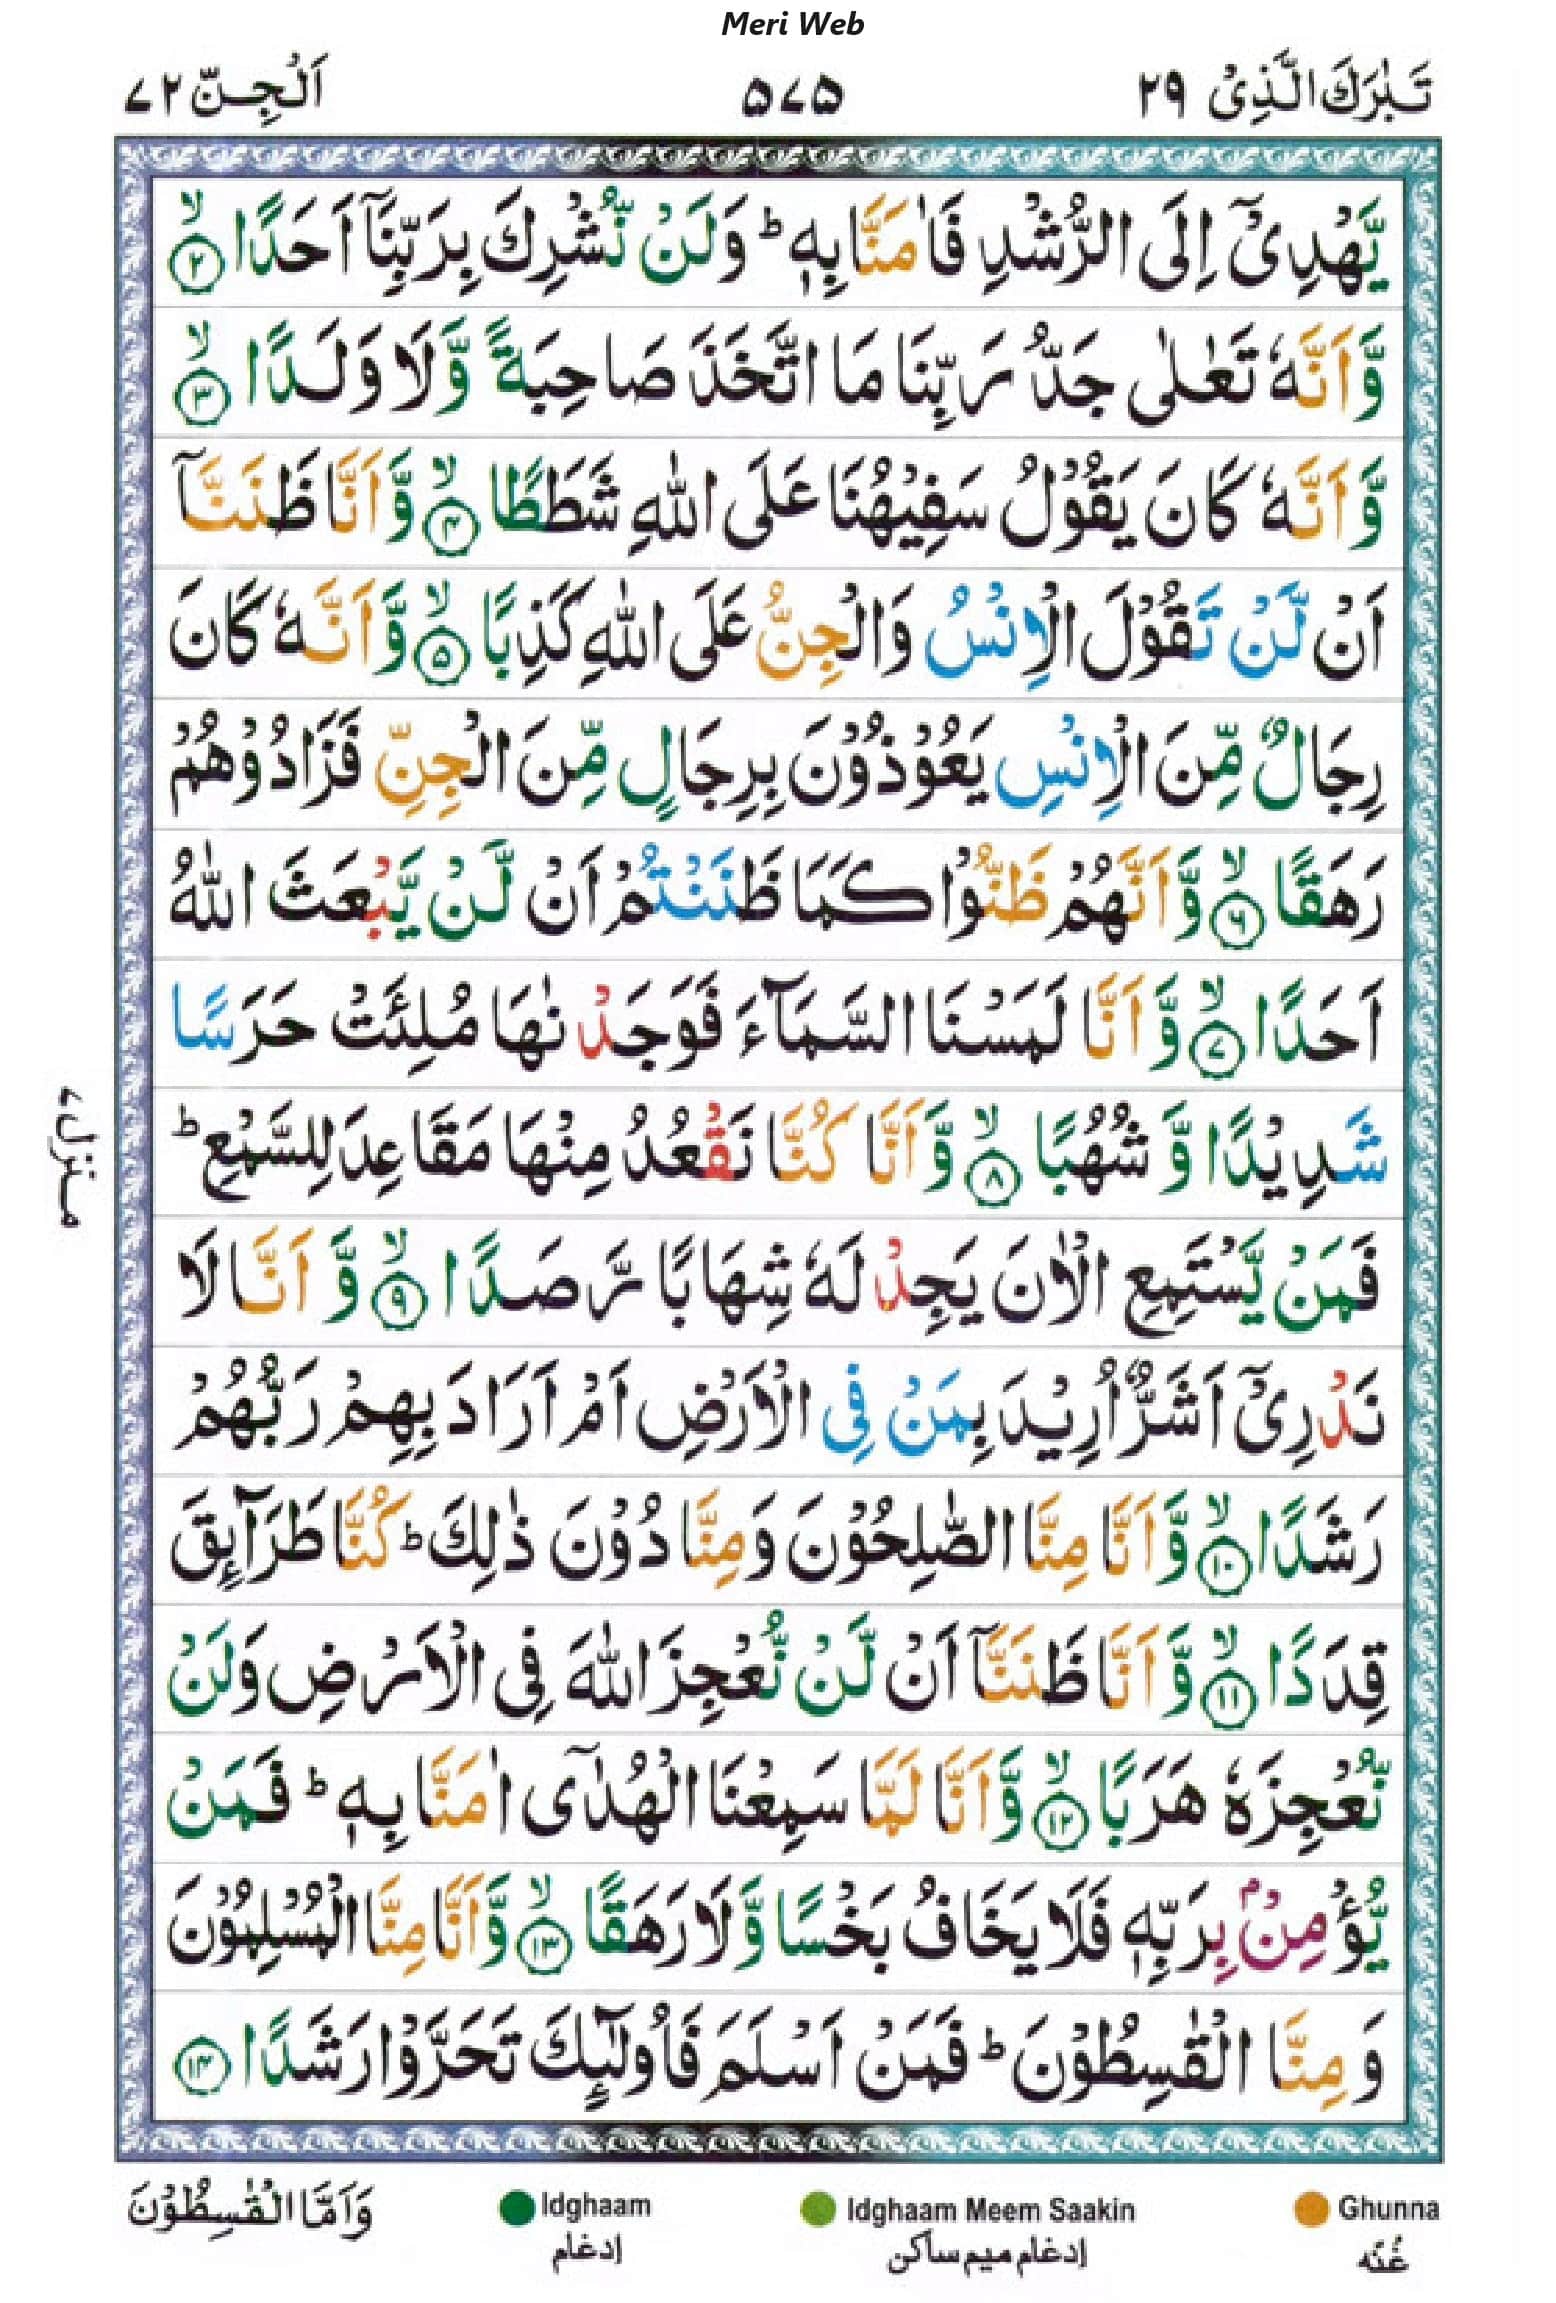 Meri Web
تَبٰرَكَ الَّذِیْ ۲۹ ۵۷۵ اَلْجِنّ ۷۲
یَّهْدِیْۤ اِلَی الرُّشْدِ فَاٰمَنَّا بِهٖ ؕ وَلَنْ نُّشْرِكَ بِرَبِّنَاۤ اَحَدًا ۙ﴿۲﴾
وَّاَنَّهٗ تَعٰلٰی جَدُّ رَبِّنَا مَا اتَّخَذَ صَاحِبَةً وَّلَا وَلَدًا ۙ﴿۳﴾
وَّاَنَّهٗ كَانَ یَقُوْلُ سَفِیْهُنَا عَلَی اللّٰهِ شَطَطًا ۙ﴿۴﴾ وَّاَنَّا ظَنَنَّاۤ
اَنْ لَّنْ تَقُوْلَ الْاِنْسُ وَالْجِنُّ عَلَی اللّٰهِ كَذِبًا ۙ﴿۵﴾ وَّاَنَّهٗ كَانَ
رِجَالٌ مِّنَ الْاِنْسِ یَعُوْذُوْنَ بِرِجَالٍ مِّنَ الْجِنِّ فَزَادُوْهُمْ
رَهَقًا ۙ﴿۶﴾ وَّاَنَّهُمْ ظَنُّوْا كَمَا ظَنَنْتُمْ اَنْ لَّنْ یَّبْعَثَ اللّٰهُ
اَحَدًا ۙ﴿۷﴾ وَّاَنَّا لَمَسْنَا السَّمَآءَ فَوَجَدْنٰهَا مُلِئَتْ حَرَسًا
شَدِیْدًا وَّشُهُبًا ۙ﴿۸﴾ وَّاَنَّا كُنَّا نَقْعُدُ مِنْهَا مَقَاعِدَ لِلسَّمْعِ ؕ
فَمَنْ یَّسْتَمِعِ الْاٰنَ یَجِدْ لَهٗ شِهَابًا رَّصَدًا ۙ﴿۹﴾ وَّاَنَّا لَا
نَدْرِیْۤ اَشَرٌّ اُرِیْدَ بِمَنْ فِی الْاَرْضِ اَمْ اَرَادَ بِهِمْ رَبُّهُمْ
رَشَدًا ۙ﴿۱۰﴾ وَّاَنَّا مِنَّا الصّٰلِحُوْنَ وَمِنَّا دُوْنَ ذٰلِكَ ؕ كُنَّا طَرَآئِقَ
قِدَدًا ۙ﴿۱۱﴾ وَّاَنَّا ظَنَنَّاۤ اَنْ لَّنْ نُّعْجِزَ اللّٰهَ فِی الْاَرْضِ وَلَنْ
نُّعْجِزَهٗ هَرَبًا ۙ﴿۱۲﴾ وَّاَنَّا لَمَّا سَمِعْنَا الْهُدٰۤی اٰمَنَّا بِهٖ ؕ فَمَنْ
یُّؤْمِنْۢ بِرَبِّهٖ فَلَا یَخَافُ بَخْسًا وَّلَا رَهَقًا ۙ﴿۱۳﴾ وَّاَنَّا مِنَّا الْمُسْلِمُوْنَ
وَمِنَّا الْقٰسِطُوْنَ ؕ فَمَنْ اَسْلَمَ فَاُولٰٓئِكَ تَحَرَّوْا رَشَدًا ﴿۱۴﴾
منزل ۷
وَاَمَّا الْقٰسِطُوْنَ
Idghaam Idghaam Meem Saakin Ghunna
إدغام إدغام ميم ساكن غُنّه